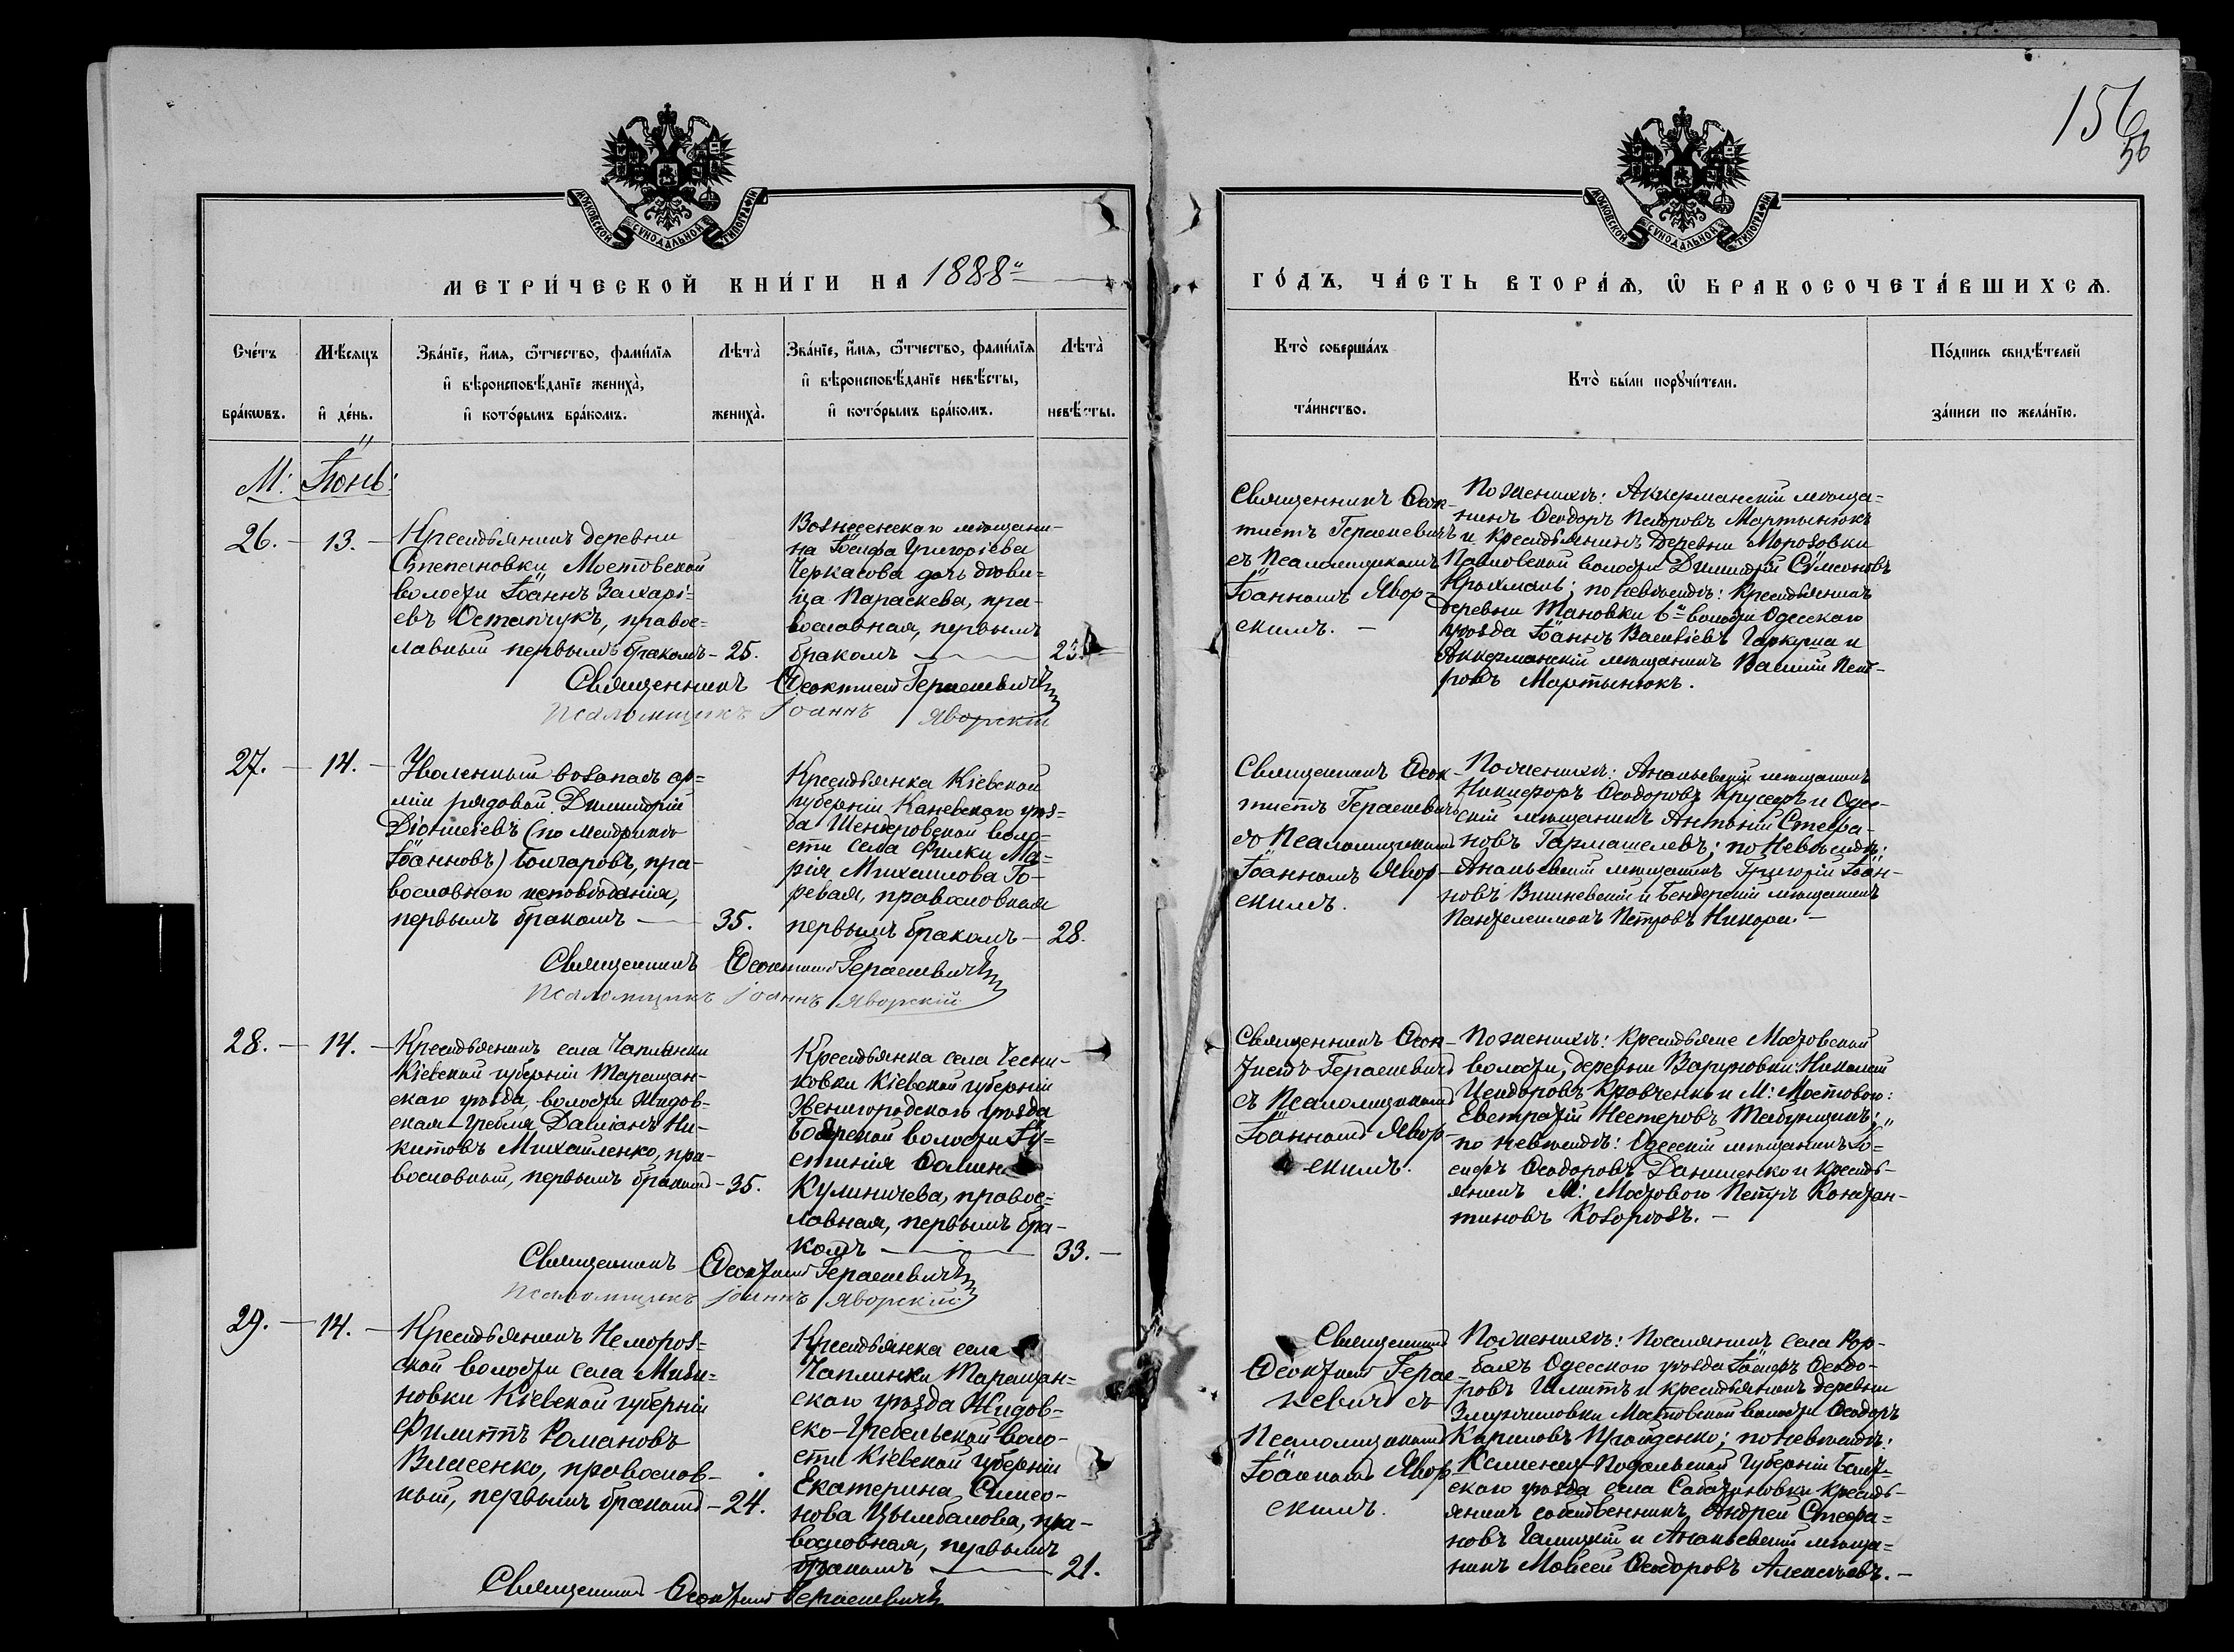 156
56
МОСКОВСКОЙ СѴНОДАЛЬНОЙ ТИПОГРАФІИ
МОСКОВСКОЙ СѴНОДАЛЬНОЙ ТИПОГРАФІИ
МЕТРИ́ЧЕСКОЙ КНИ́ГИ НА 1888
ГО́ДЪ, ЧА́СТЬ ВТОРА́Ѧ, Ѿ БРАКОСОЧЕТА́ВШИХСѦ.
Сче́тъ
бра́кѡвъ.
Мѣ́сяцъ
и҆ де́нь.
Зва́нїе, и҆́мѧ, ѻ҆́тчество, фами́лїѧ
и҆ вѣроисповѣ́данїе жениха̀,
и҆ кото́рымъ бра́комъ.
Лѣта̀
жениха̀.
Зва́нїе, и҆́мѧ, ѻ҆́тчество, фами́лїѧ
и҆ вѣроисповѣ́данїе невѣ́сты,
и҆ кото́рымъ бра́комъ.
Лѣта̀
невѣ́сты.
Кто̀ соверша́лъ
та́инство.
Кто̀ бы́ли порꙋчи́тели.
По́дпись свидѣ́телей
за́писи по жела́нїю.
М: Іюнь:
26. - 13. -
Крестьянинъ деревни
Степановки Мостовской
волости Іоаннъ Захарі=
евъ Остапчукъ, правос=
лавный первымъ бракомъ - 25.
Вознесенскаго мѣщани-
на Іосифа Григоріева
Черкасова дочь дѣви=
ца Параскева, пра-
вославная, первымъ
бракомъ — 23.
Священникъ Ѳеок-
тистъ Герасневичъ
съ Псаломщикомъ
Іоанномъ Явор=
скимъ. -
По женихѣ: Аккерманскій мѣща=
нинъ Ѳеодоръ Петровъ Мартынюкъ
и крестьянинъ деревни Морозовки
Павловской волости Димитрій Сѵмеоновъ
Крыжмаль; по невѣстѣ: крестьянинъ
деревни Тановки 6й волости Одесскаго
уѣзда Іоаннъ Василіевъ Гаркуша и
Аккерманскій мѣщанинъ Василій Пет-
ровъ Мартынюкъ.
Священникъ Ѳеоктистъ Герасневичъ
Псаломщикъ Іоаннъ Яворскій
27. - 14. -
Уволенный въ запасъ ар=
міи рядовой Димитрій
Діонисіевъ (по метрикѣ
Іоанновъ) Гончаровъ, пра-
вославнаго исповѣданія,
первымъ бракомъ — 35.
Крестьянка Кіевской
губерніи Каневскаго уѣз-
да Шендеровской воло-
сти села Филки Ма=
рія Михаилова Го-
ревая, православная
первымъ бракомъ - 28.
Священникъ Ѳеок-
тистъ Герасневичъ
съ Псаломщикомъ
Іоанномъ Явор-
скимъ.
По женихѣ: Ананьевскій мѣщанинъ
Никифоръ Ѳеодоровъ Крусеръ и Одес-
скій мѣщанинъ Антоній Стефа-
новъ Гармашелевъ; по невѣстѣ:
Ананьевскій мѣщанинъ Григорій Іоан-
новъ Вишневскій и Бендерскій мѣщанинъ
Пантелеимонъ Петровъ Никора. -
Священникъ Ѳеоктистъ Герасневичъ
Псаломщикъ Іоаннъ Яворскій
28. - 14. -
Крестьянинъ села Чаплинки
Кіевской губерніи Таращан-
скаго уѣзда, волости Жидов-
ская-Гребля Даміанъ Ни-
китовъ Михайленко, пра-
вославный, первымъ бракомъ - 35.
Крестьянка села Чесни-
ковки Кіевской губерніи
Звенигородскаго уѣзда
Боярской волости Іу=
стинія Ѳомина
Кулиничева, правос=
лавная, первымъ бра-
комъ — 33. -
Священникъ Ѳеок-
тистъ Герасневичъ
съ Псаломщикомъ
Іоанномъ Явор-
скимъ.
По женихѣ: крестьяне Мостовской
волости, деревни Варуновки: Николай
Исидоровъ Кравченко и М: Мостового:
Евстратій Нестеровъ Табунщикъ;
по невѣстѣ: Одесскій мѣщанинъ Іо=
сифъ Ѳеодоровъ Даниленко и кресть-
янинъ М: Мостового Петръ Констан-
тиновъ Козорѣзъ. -
Священникъ Ѳеоктистъ Герасневичъ
Псаломщикъ Іоаннъ Яворскій
29. - 14. -
Крестьянинъ Немороз=
ской волости села
новки Кіевской губерніи
Филиппъ Романовъ
Власенко, православ-
ный, первымъ бракомъ - 24.
Крестьянка села
Чаплинки Таращан=
скаго уѣзда Жидов-
ско-Гребельской воло-
сти Кіевской губерніи
Екатерина Симео-
нова Цымбалова, пра-
вославная, первымъ
бракомъ — 21.
Священникъ
Ѳеоктистъ Герас-
невичъ съ
Псаломщикомъ
Іоанномъ Явор
скимъ.
По женихѣ: Поселянинъ села Рор-
бахъ Одесскаго уѣзда Іосифъ Ѳеодо-
ровъ Шмитъ и крестьянинъ деревни
Мостовской волости Ѳеодоръ
Кариловъ; по невѣстѣ:
Каменец-Подольской губерніи Балт-
скаго уѣзда села Сабатиновки кресть-
янинъ собственникъ Андрей Стефа=
новъ Галицкій и Ананьевскій мѣща=
нинъ Моисей Ѳеодоровъ Алексѣевъ. -
Священникъ Ѳеоктистъ Герасневичъ